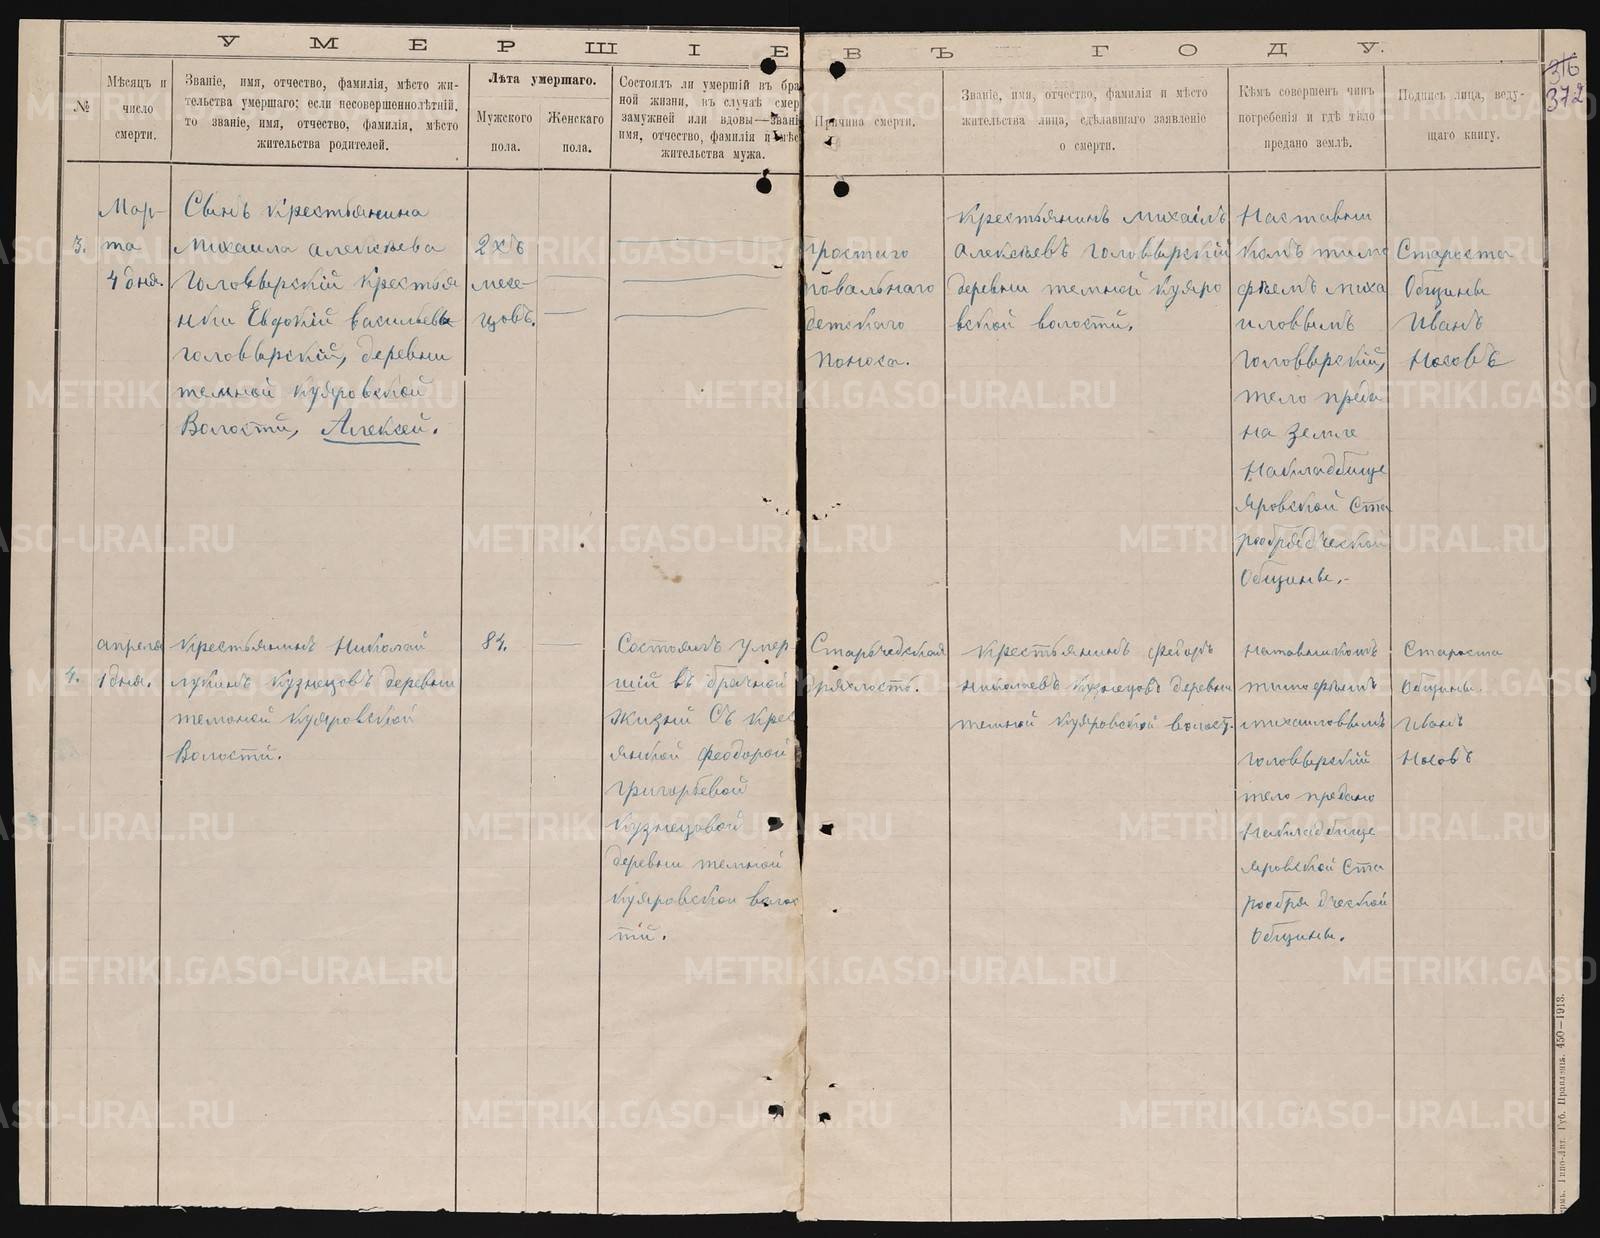 УМЕРШІЕ ВЪ ГОДУ.
№
Мѣсяцъ и
число
смерти.
Званіе, имя, отчество, фамилія, мѣсто жи-
тельства умершаго; если несовершеннолѣтній,
то званіе, имя, отчество, фамилія, мѣсто
жительства родителей.
Лѣта умершаго.
Мужского
пола.
Женскаго
пола.
Состоялъ ли умершій въ бра
ной жизни, въ случаѣ смер
замужней или вдовы—звані
имя, отчество, фамилія и мѣс
жительства мужа.
Причина смерти.
Званіе, имя, отчество, фамилія и мѣсто
жительства лица, сдѣлавшаго заявленіе
о смерти.
Кѣмъ совершенъ чинъ
погребенія и гдѣ тѣло
предано землѣ.
Подпись лица, веду-
щаго книгу.
316
372
3.
Мар-
та
4 дня.
Сынъ крестьянина
Михаила алексьева
Головырскій крестья
нки Евдокій васильевы
головырскій, деревни
темной куяровской
Волостй, Алексей.
2хъ
месе-
цовъ.
Простаго
повальнаго
детскаго
поноса.
Крестьянинъ михаилъ
Алексьевъ головырскій
деревни темной куяро
вской волостй.
Наставни
комъ тимо
фьемъ миха
иловымъ
головырскій,
тело преда
на земле
накладбище
яровской Ста
рообрядческой
Общины.-
Староста
Общины
Иванъ
Носовъ
4.
апреля
1 дня.
Крестьянинъ Николай
лукинъ кузнецовъ деревни
темоной куяровской
Волостй.
84.
Состоялъ умер-
шій въ брачной
жизнй Съ крес
янкой феодорой
григорьевой
кузнецовой
деревни темной
куяровской волос
тй.
Старческая
дряхлость.
Крестьянинъ федоръ
николаевъ кузнецовъ деревни
темной куяровской волост.
наставникомъ
тимофьемъ
михаиловымъ
головырскій
тело предано
накладбище
яровской Ста
рообрядческой
Общины.
Староста
Общины.
Иванъ
Носовъ
Губ. Правленія. 450—1913.
METRIKI.GASO-URAL.RU